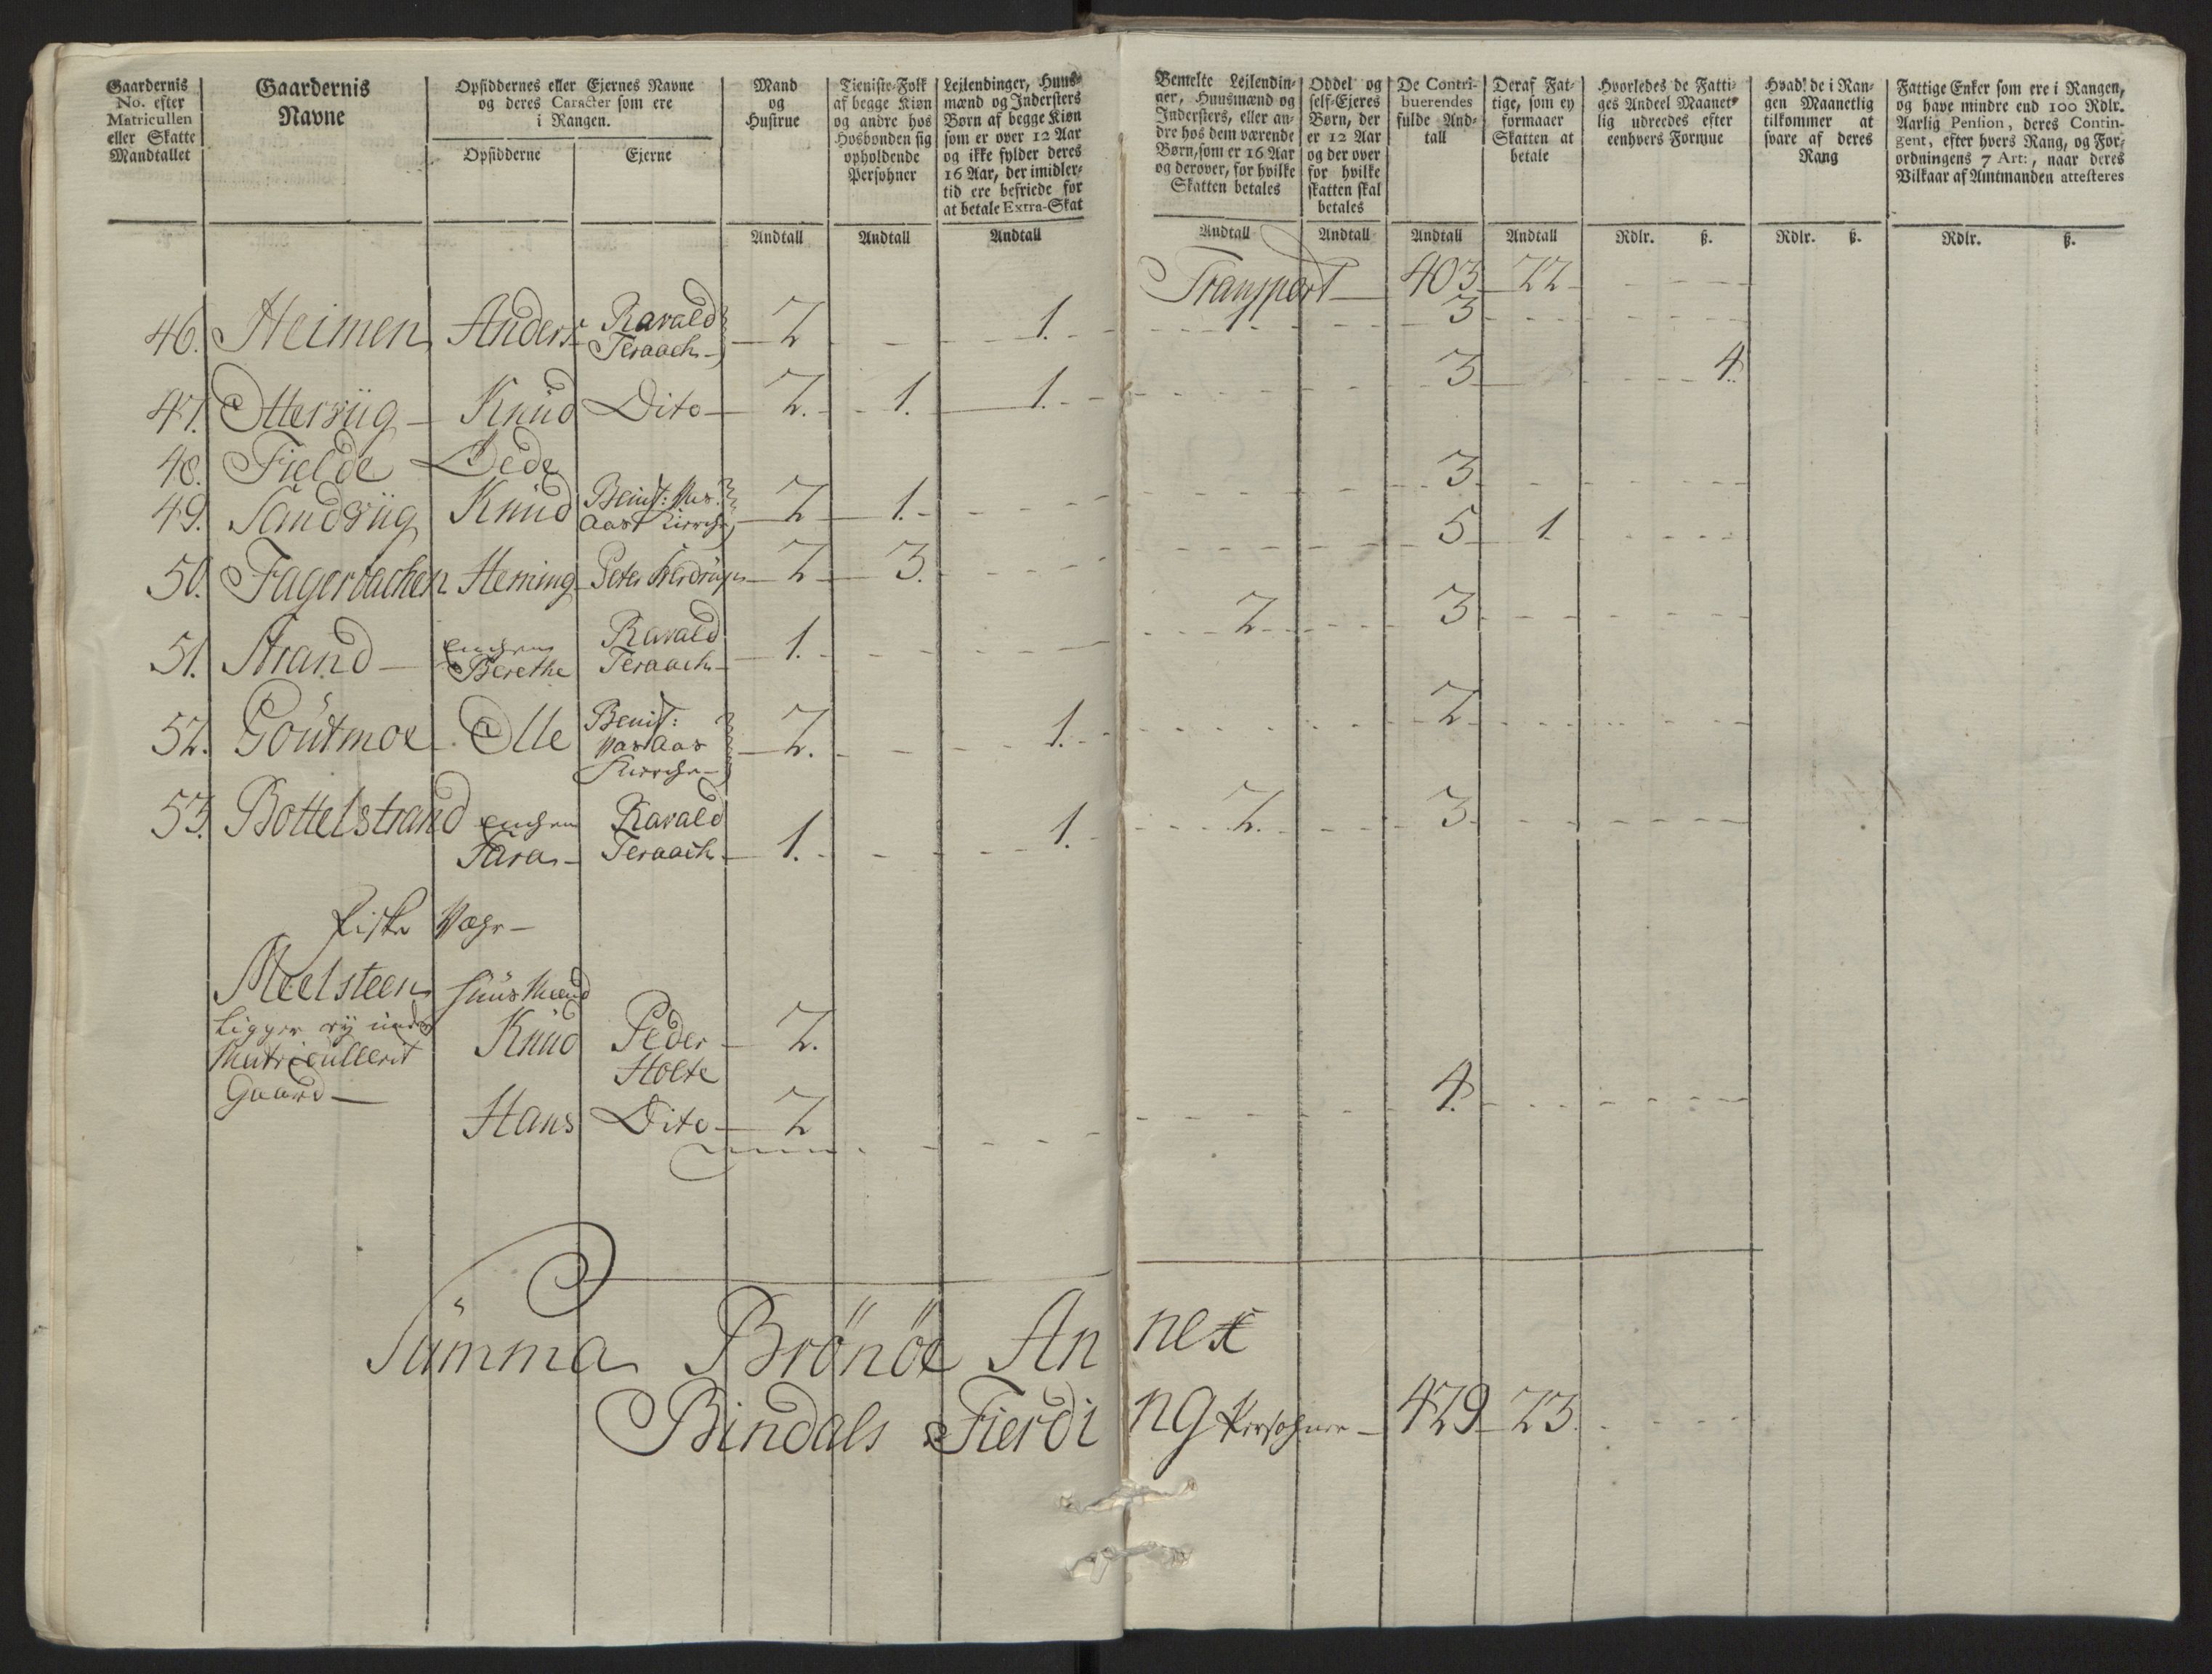 Gaardernis
No. efter
Matricullen
eller Skatte
Mandtallet
Gaardernis
Navne
Opsiddernes eller Ejernes Navne
og deres Caracter som ere
i Rangen.
Opsidderne
Ejerne
Mand
og
Hustrue
Andtall
Tieniste-Folk
af begge Kiøn
og andre hos
Hosbonden sig
opholdende
Persohner
Andtall
Lejlendinger, Huus-
mænd og Indersters
Børn af begge Kiøn
som er over 12 Aar
og ikke fylder deres
16 Aar, der imidler-
tid ere befriede for
at betale Extra-Skat
Andtall
Bemelte Lejlendin-
ger, Huusmænd og
Indersters, eller an-
dre hos dem værende
Børn, som er 16 Aar
og derover, for hvilke
Skatten betales
Andtall
Oddel og
self-Ejeres
Børn, der
er 12 Aar
og der over
for hvilke
skatten skal
betales
Andtall
De Contri-
buerendes
fulde And-
tall
Andtall
Deraf Fat-
tige, som ey
formaaer
Skatten at
betale
Andtall
Hvorledes de Fatti-
ges Andeel Maanet-
lig udreedes efter
eenhvers Formue
Rdlr. ß.
Hvad de i Ran-
gen Maanetlig
tilkommer at
svare af deres
Rang
Rdlr. ß.
Fattige Enker som ere i Rangen,
og have mindre end 100 Rdlr.
Aarlig Pension, deres Contin-
gent, efter hvers Rang, og For-
ordningens 7 Art:, naar deres
Vilkaar af Amtmanden attesteres
Rdlr. ß.
Transport 403 22
46. Heimen Anders Ravald
Teraach 2 1. 1. 3
47. Ottersüg Knud Dito 2. 1. 1. 3 4.
48. Fielde Øde
49. Sandvüg Knud Benif:
Aas Kirche 2 1. 3
50. Fagerbachen Heming Peter 2 3. 5 1
51. Strand Enchen
Berethe Ravald
Teraach 1. 2 3
52. Goütmoe Olle Benif:
Aas
Kirche 2. 1. 2
53. Bottelstrand Enchen
Sara Ravald
Teraach 1. 1. 2. 3
Fiske Vær
Meelsteen Huusmænd
Ligger ey under
Matricullerit
Gaard
Knud Peder
Holte 2.
Hans Dito 2 4.
Summa Brönöe Annex
Bindals Fierding Persohner 429 23.